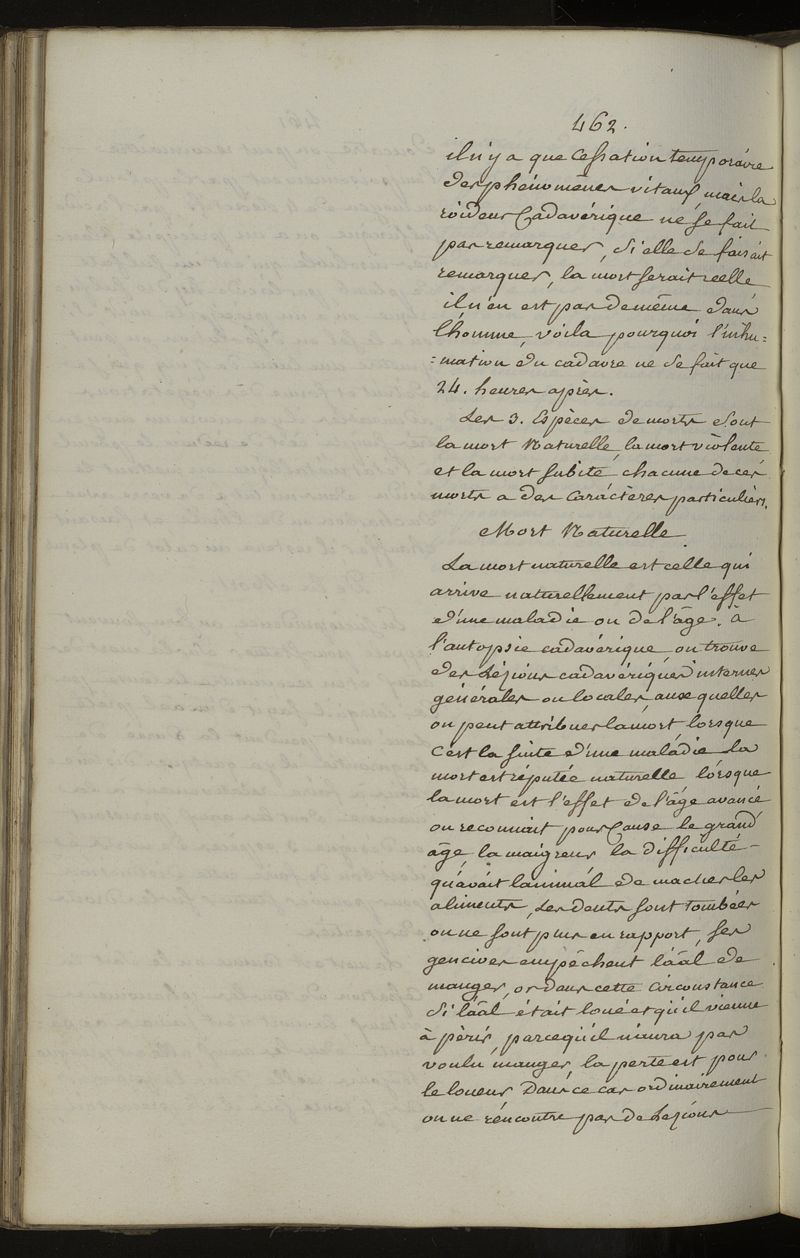 462.
il n'y a que Cessation temporaire
des phénomènes vitaux, mais la
roideur Cadavérique ne se fait
pas remarquer, si elle se faisait
remarquer, la mort serait réelle
il n'en est pas de même dans
l'homme, voila pourquoi l'inhu:
:mation du cadavre ne se fait que
24. heures après.
Les 3. Espèces de morts sont
la mort Naturelle, la mort violente
et la mort subite, chacune de ces
morts a des Caractères particuliers.
Mort Naturelle
La mort naturelle est celle qui
arrive naturellement par l'effet
d'une maladie ou de l'âge. à
l'autopsie cadavérique, on trouve
des Lézions cadavériques internes
générales ou locales, auxquelles
on peut attribuer la mort, lorsque
C'est la suite d'une maladie la
mort est réputée naturelle, lorsque
la mort est l'effet de l'âge avancé
on reconnait pour Cause le grand
âge, la maigreur la difficulté -
qu'avait l'animal de macher les
aliments, les dents sont tombées
ou ne sont plus en rapport, ses
gencives empêchent l'aal de
manger, or dans cette Circonstance
Si l'aal était loué et qu'il vienne
à périr, parcequ'il n'aura pas
voulu manger, la perte est pour
le loueur, Dans ce cas ordinairement
on ne rencontre pas de Lezions